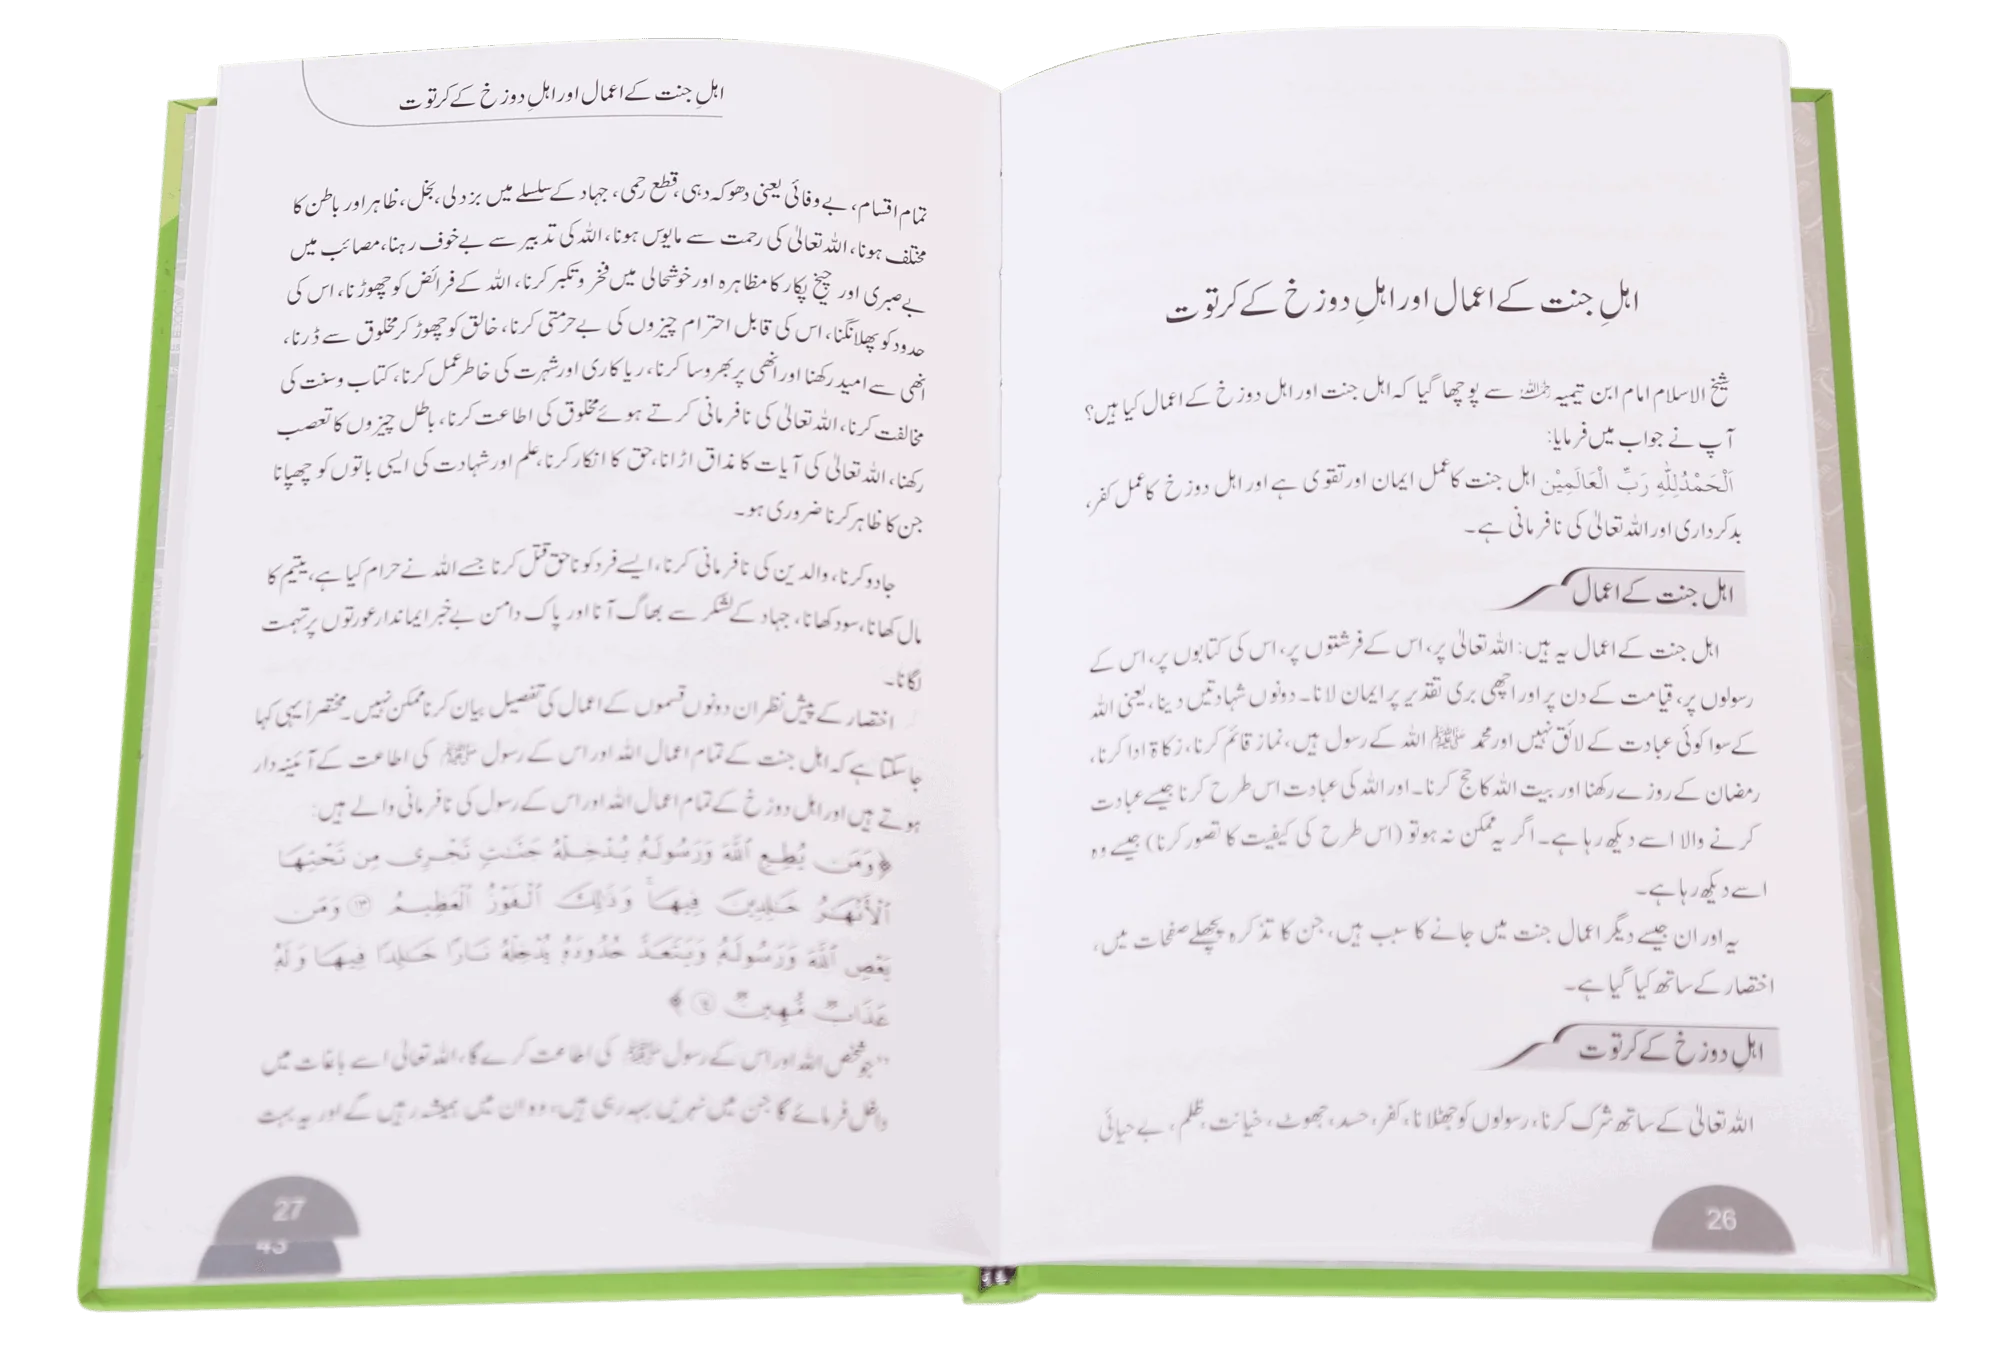 اہلِ جنت کے اعمال اور اہلِ دوزخ کے کرتوت
شیخ الاسلام امام ابن تیمیہ رحمہ اللہ سے پوچھا گیا کہ اہل جنت اور اہل دوزخ کے اعمال کیا ہیں؟
آپ نے جواب میں فرمایا:
اَلْحَمْدُلِلّٰهِ رَبِّ الْعَالَمِيْن اہل جنت کا عمل ایمان اور تقوی ہے اور اہل دوزخ کا عمل کفر،
بدکرداری اور اللہ تعالیٰ کی نافرمانی ہے۔
اہل جنت کے اعمال
اہل جنت کے اعمال یہ ہیں: اللہ تعالیٰ پر، اس کے فرشتوں پر، اس کی کتابوں پر، اس کے
رسولوں پر، قیامت کے دن پر اور اچھی بری تقدیر پر ایمان لانا۔ دونوں شہادتیں دینا، یعنی اللہ
کے سوا کوئی عبادت کے لائق نہیں اور محمد ﷺ اللہ کے رسول ہیں، نماز قائم کرنا، زکاۃ ادا کرنا،
رمضان کے روزے رکھنا اور بیت اللہ کا حج کرنا۔ اور اللہ کی عبادت اس طرح کرنا جیسے عبادت
کرنے والا اسے دیکھ رہا ہے۔ اگر یہ ممکن نہ ہو تو (اس طرح کی کیفیت کا تصور کرنا) جیسے وہ
اسے دیکھ رہا ہے۔
یہ اور ان جیسے دیگر اعمال جنت میں جانے کا سبب ہیں، جن کا تذکرہ پچھلے صفحات میں،
اختصار کے ساتھ کیا گیا ہے۔
اہلِ دوزخ کے کرتوت
اللہ تعالیٰ کے ساتھ شرک کرنا، رسولوں کو جھٹلانا، کفر، حسد، جھوٹ، خیانت، ظلم، بے حیائی
26
اہلِ جنت کے اعمال اور اہلِ دوزخ کے کرتوت
تمام اقسام، بے وفائی یعنی دھوکہ دہی، قطع رحمی، جہاد کے سلسلے میں بزدلی، بخل، ظاہر اور باطن کا
مختلف ہونا، اللہ تعالیٰ کی رحمت سے مایوس ہونا، اللہ کی تدبیر سے بے خوف رہنا، مصائب میں
بے صبری اور چیخ پکار کا مظاہرہ اور خوشحالی میں فخر و تکبر کرنا، اللہ کے فرائض کو چھوڑنا، اس کی
حدود کو پھلانگنا، اس کی قابل احترام چیزوں کی بے حرمتی کرنا، خالق کو چھوڑ کر مخلوق سے ڈرنا،
انھی سے امید رکھنا اور انھی پر بھروسا کرنا، ریا کاری اور شہرت کی خاطر عمل کرنا، کتاب و سنت کی
مخالفت کرنا، اللہ تعالیٰ کی نافرمانی کرتے ہوئے مخلوق کی اطاعت کرنا، باطل چیزوں کا تعصب
رکھنا، اللہ تعالیٰ کی آیات کا مذاق اڑانا، حق کا انکار کرنا، علم اور شہادت کی ایسی باتوں کو چھپانا
جن کا ظاہر کرنا ضروری ہو۔
جادو کرنا، والدین کی نافرمانی کرنا، ایسے فرد کو ناحق قتل کرنا جسے اللہ نے حرام کیا ہے، یتیم کا
مال کھانا، سود کھانا، جہاد کے لشکر سے بھاگ آنا اور پاک دامن بے خبر ایماندار عورتوں پر تہمت
لگانا۔
اختصار کے پیش نظر ان دونوں قسموں کے اعمال کی تفصیل بیان کرنا ممکن نہیں۔ مختصراً یہی کہا
جا سکتا ہے کہ اہل جنت کے تمام اعمال اللہ اور اس کے رسول ﷺ کی اطاعت کے آئینہ دار
ہوتے ہیں اور اہل دوزخ کے تمام اعمال اللہ اور اس کے رسول کی نافرمانی والے ہیں:
﴿وَمَن يُطِعِ ٱللَّهَ وَرَسُولَهُۥ يُدْخِلْهُ جَنَّـٰتٍ تَجْرِى مِن تَحْتِهَا
ٱلْأَنْهَـٰرُ خَـٰلِدِينَ فِيهَا ۚ وَذَٰلِكَ ٱلْفَوْزُ ٱلْعَظِيمُ ۝١٣ وَمَن
يَعْصِ ٱللَّهَ وَرَسُولَهُۥ وَيَتَعَدَّ حُدُودَهُۥ يُدْخِلْهُ نَارًا خَـٰلِدًا فِيهَا وَلَهُۥ
عَذَابٌ مُّهِينٌ ۝١٤﴾
”جو شخص اللہ اور اس کے رسول ﷺ کی اطاعت کرے گا، اللہ تعالیٰ اسے باغات میں
داخل فرمائے گا جن میں نہریں بہہ رہی ہیں، وہ ان میں ہمیشہ رہیں گے اور یہ بہت
27
43